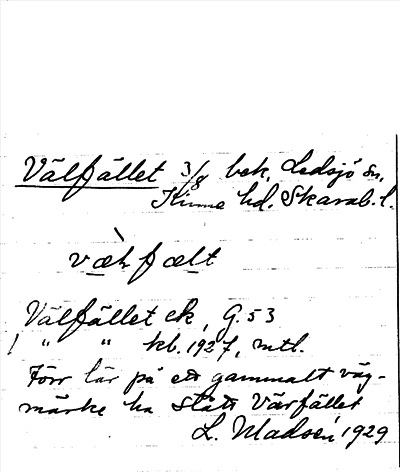 Välfället 3/8 bek. Ledsjö sn,
Kinne hd. Skarab. l.
væ̀lfælt
Välfället ek, G. 53
" " kb. 1927, mtl.
Förr lär på ett gammalt väg-
märke ha stått Värfället
L. Madsén 1929